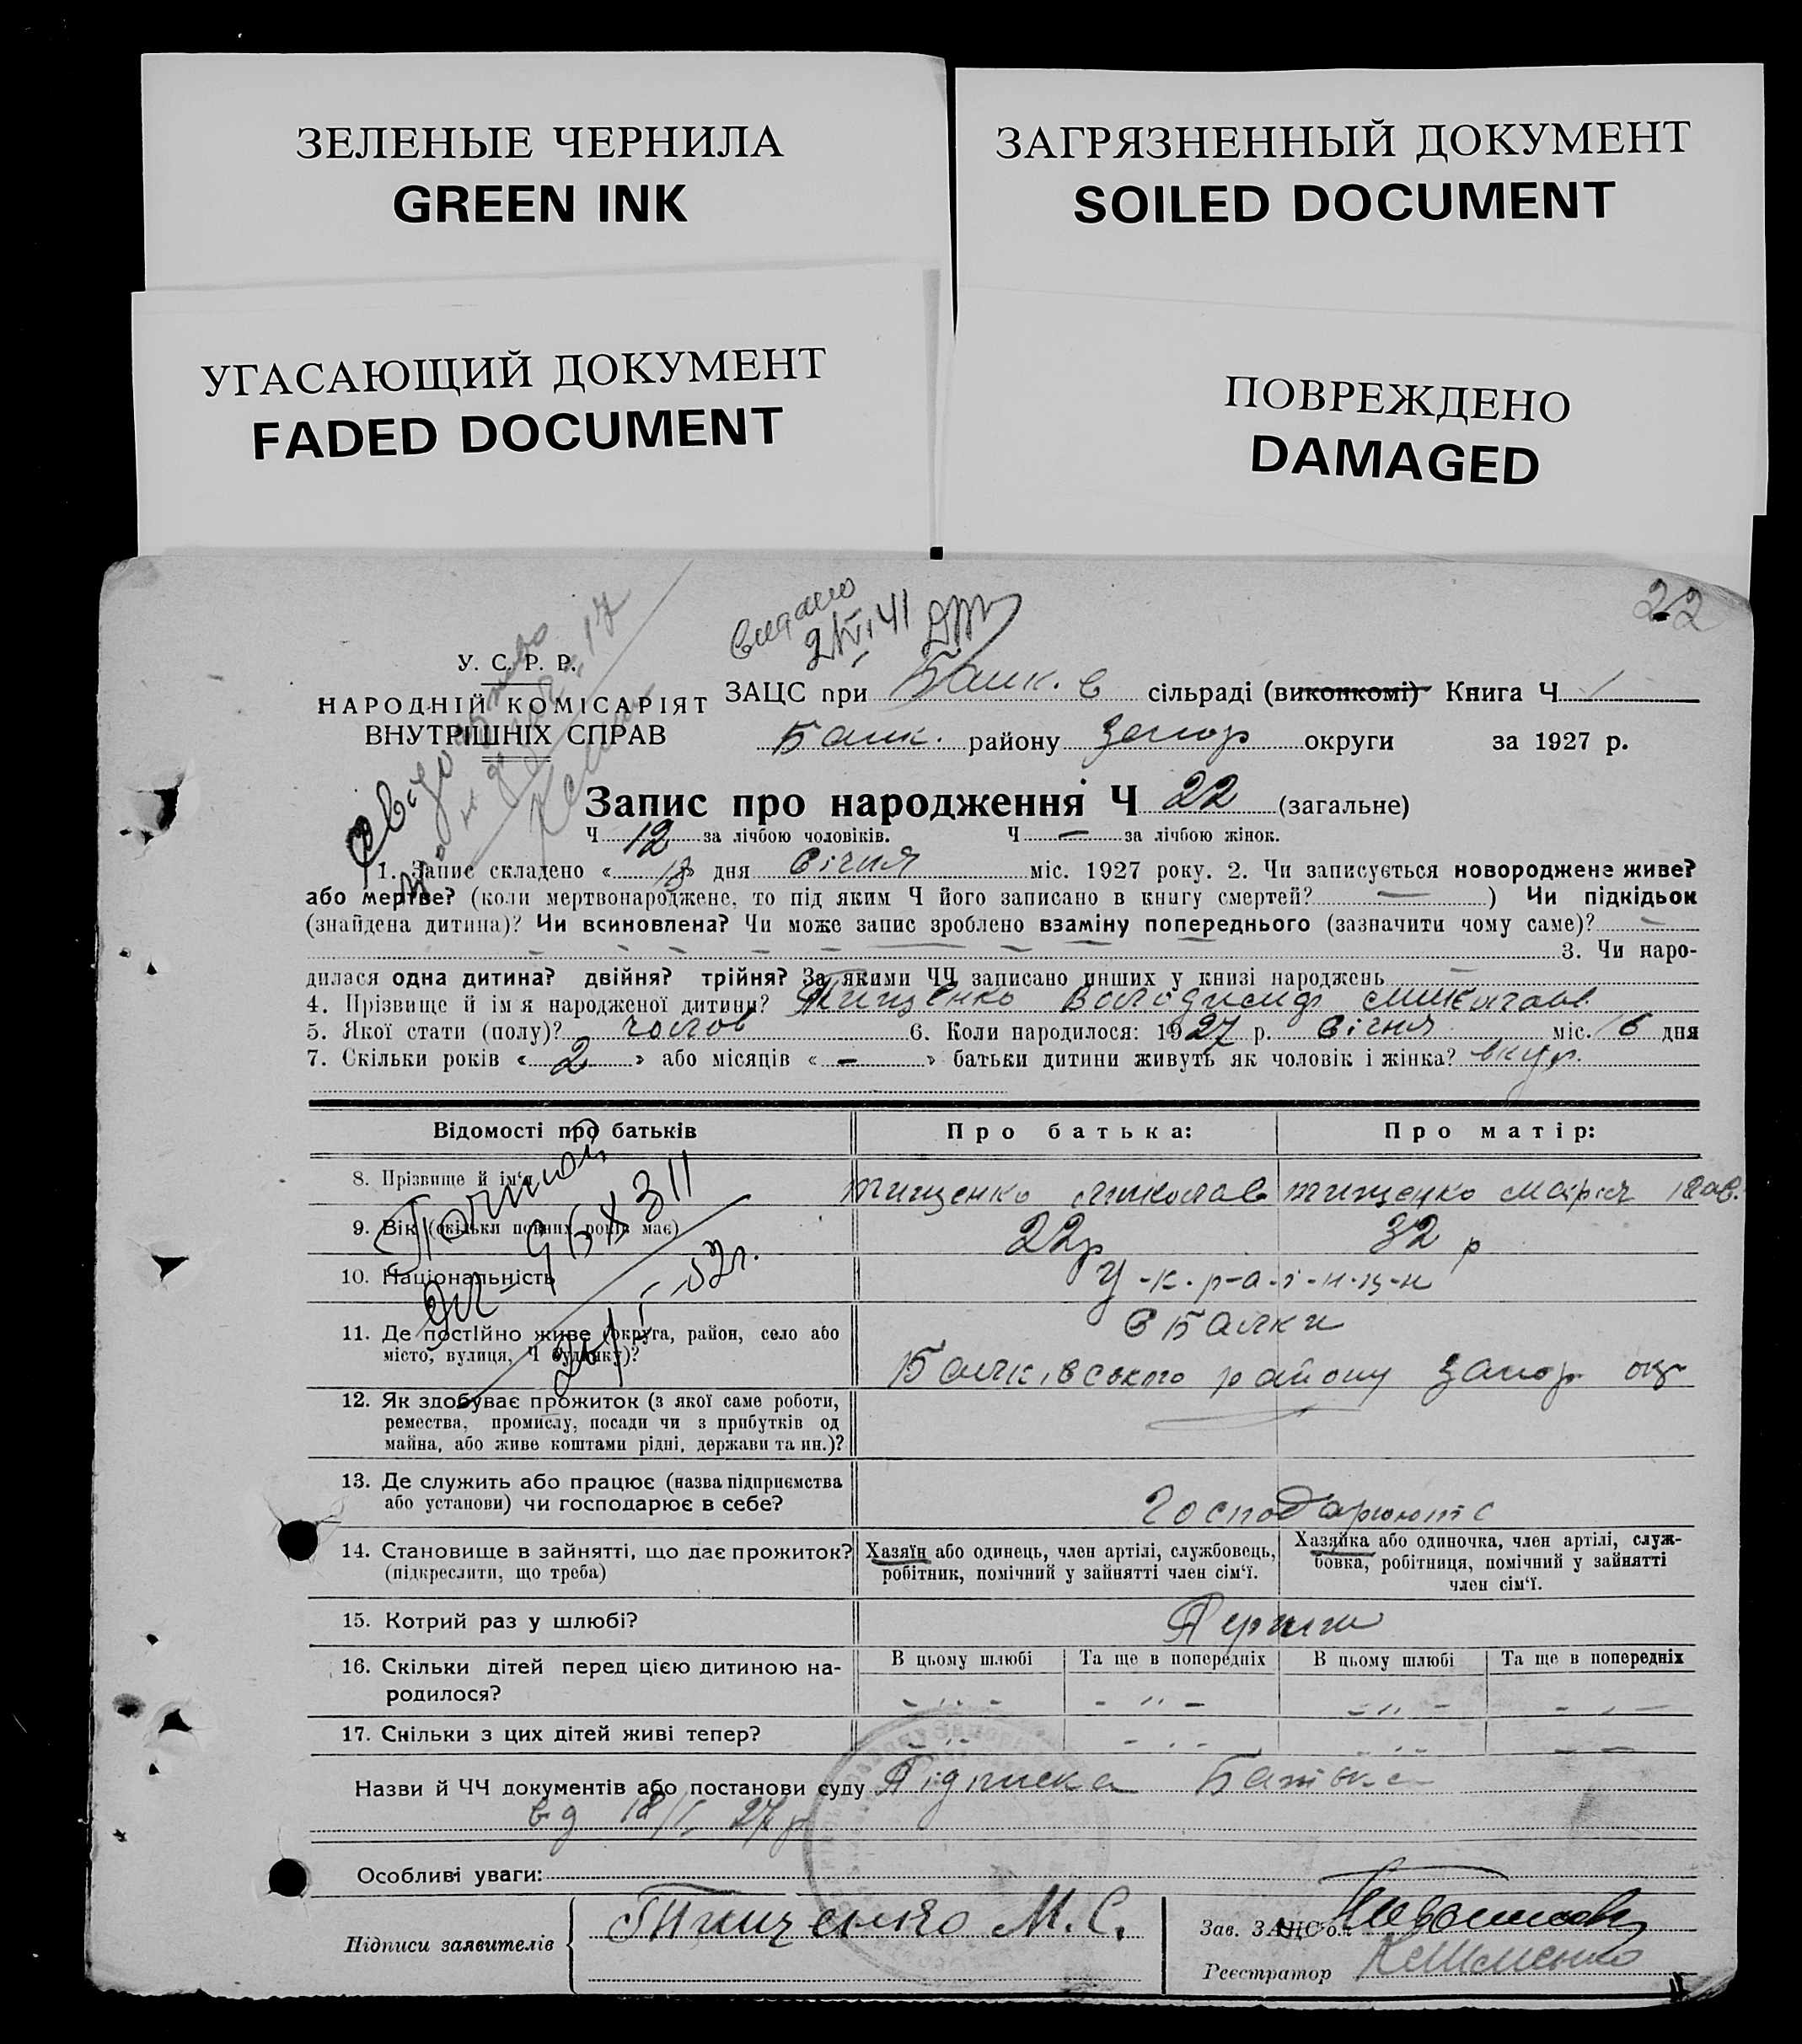 ЗЕЛЕНЫЕ ЧЕРНИЛА
GREEN INK
ЗАГРЯЗНЕННЫЙ ДОКУМЕНТ
SOILED DOCUMENT
УГАСАЮЩИЙ ДОКУМЕНТ
FADED DOCUMENT
ПОВРЕЖДЕНО
DAMAGED
22
У. С. Р. Р.
НАРОДНІЙ КОМІСАРІЯТ
ВНУТРІШНІХ СПРАВ
ЗАЦС при сільраді (виконкомі) Книга Ч 1
району Запор округи за 1927 р.
Запис про народження Ч 22 (загальне)
Ч 12 за лічбою чоловіків. Ч — за лічбою жінок.
1. Запис складено « » дня Січня міс. 1927 року. 2. Чи записується новороджене живе?
або мертве? (коли мертвонароджене, то під яким Ч його записано в книгу смертей? — ) Чи підкідьок
(знайдена дитина)? Чи всиновлена? Чи може запис зроблено взаміну попереднього (зазначити чому саме)? —
3. Чи наро-
дилася одна дитина? двійня? трійня? За якими ЧЧ записано инших у книзі народжень —
4. Прізвище й ім'я народженої дитини? Тищенко Володимир Миколаєв
5. Якої стати (полу)? чолов 6. Коли народилося: 1927 р. Січня міс. 16 дня
7. Скільки років « 2 » або місяців « – » батьки дитини живуть як чоловік і жінка? вкуп.
Відомості про батьків Про батька: Про матір:
8. Прізвище й ім'я Тищенко Микола Тищенко Марія
9. Вік (скільки повних років має) 22р 32 р
10. Національність У-к-р-а-ї-н-ц-и
11. Де постійно живе (округа, район, село або
місто, вулиця, Ч будинку)?
с Балки
Балківського району Запор окр
12. Як здобуває прожиток (з якої саме роботи,
ремества, промислу, посади чи з прибутків од
майна, або живе коштами рідні, держави та ин.)?
13. Де служить або працює (назва підприємства
або установи) чи господарює в себе?
Господарюють
14. Становище в зайнятті, що дає прожиток?
(підкреслити, що треба)
Хазяїн або одинець, член артілі, службовець,
робітник, помічний у зайнятті член сім'ї.
Хазяйка або одиночка, член артілі, служ-
бовка, робітниця, помічний у зайнятті
член сім'ї.
15. Котрий раз у шлюбі? Перший
16. Скільки дітей перед цією дитиною на-
родилося?
В цьому шлюбі Та ще в попередніх В цьому шлюбі Та ще в попередніх
17. Скільки з цих дітей живі тепер?
Назви й ЧЧ документів або постанови суду Підписка Батька
від 18/I 27 р
Особливі уваги:
Підписи заявителів Тищенко М. С.
Зав. ЗАЦС'ом
Реєстратор Клименко